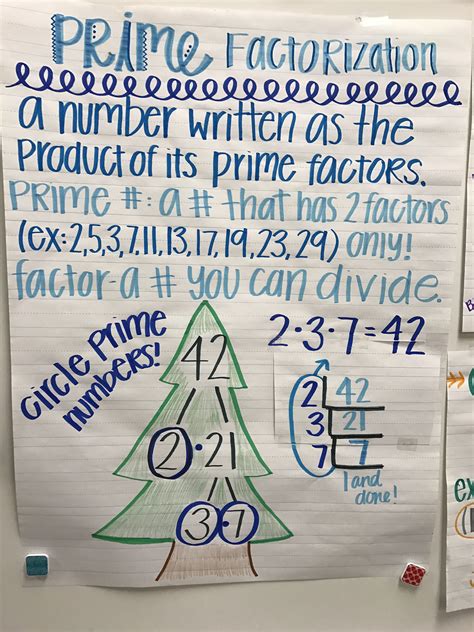 PRIME FACTORIZATION
a number written as the
Product of its prime factors.
PRIME #: a # that has 2 factors
(ex: 2,5,3,7,11,13,17,19,23,29) only!
factor-a # you can divide.
circle prime
numbers!
42
2·21
3·7
2·3·7=42
2 42
3 21
7 7
1 and
done!
ex